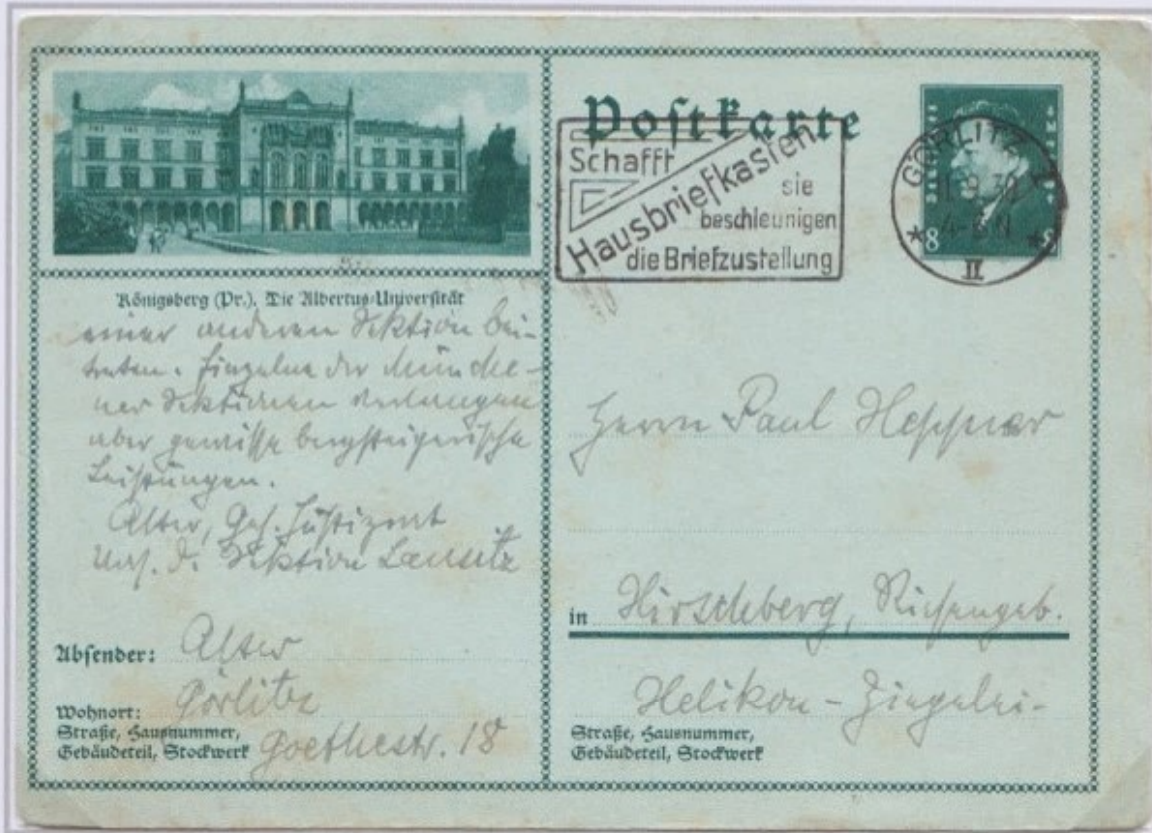 Königsberg (Pr.). Die Albertus-Universität
einer anderen Sektion bei-
treten. Einzelne der Münche-
ner Sektionen verlangen
aber gewisse bergsteigerische
Leistungen.
Alter, Geh. Justizrat
d. Sektion Lausitz
Absender: Alter
Wohnort: Görlitz
Straße, Hausnummer,
Gebäudeteil, Stockwerk Goethestr. 18
Postkarte
Schafft
Hausbriefkasten
sie
beschleunigen
die Briefzustellung
GÖRLITZ 2
9.30
4-5 N
II
8
Herrn Paul Heppner
in Hirschberg, Riesengeb.
Helikon-Ziegelei-
Straße, Hausnummer,
Gebäudeteil, Stockwerk